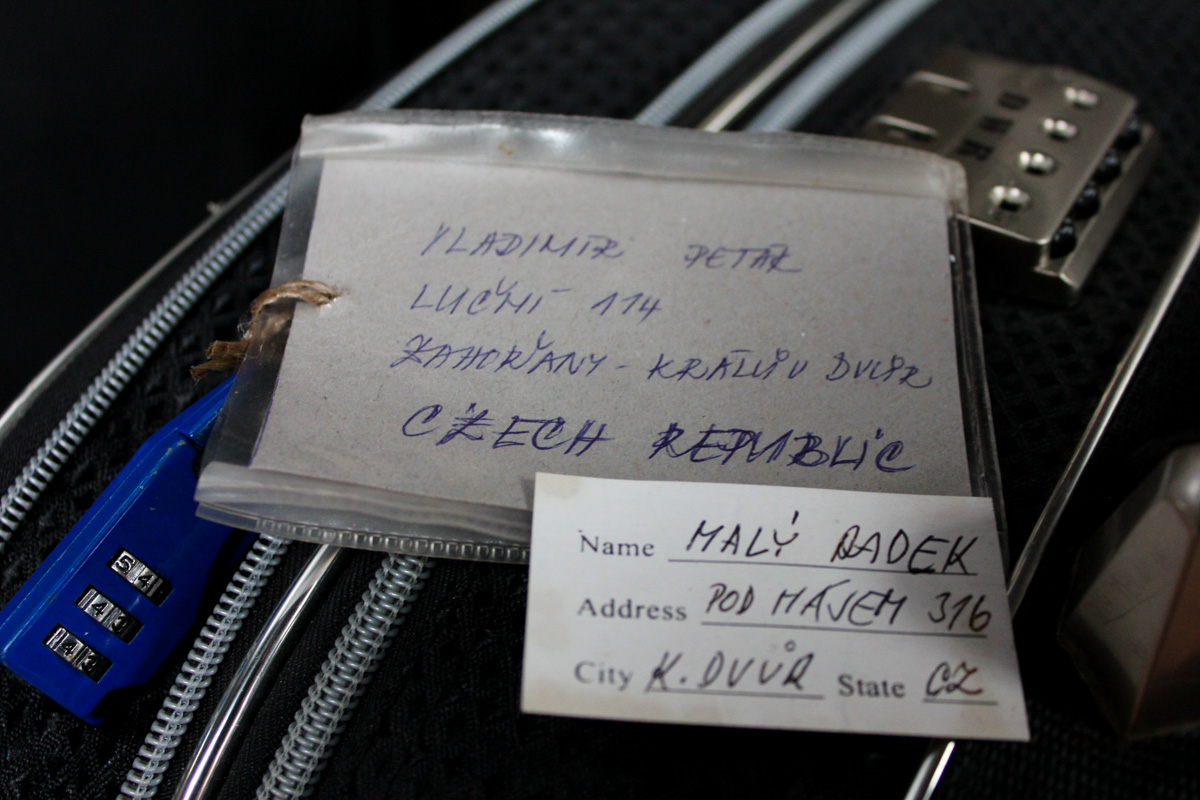 VLADIMÍR PETÁK
LUČNÍ 114
ZAHOŘANY - KRÁLŮV DVŮR
CZECH REPUBLIC
Name MALÝ RADEK
Address POD HÁJEM 316
City K. DVŮR State CZ